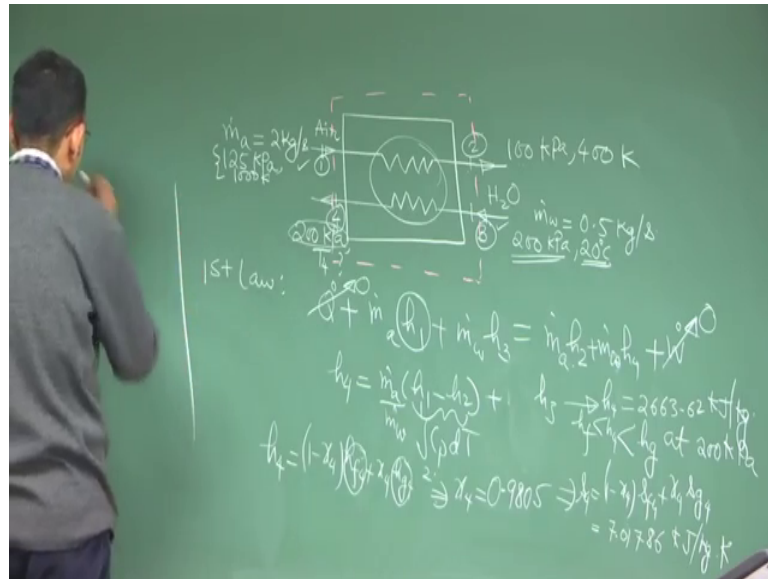 ṁa = 2 kg/s Air
125 kPa
1000 K
①
② 100 kPa, 400 K
H₂O
ṁw = 0.5 kg/s
③ 200 kPa, 20°c
④
200 kPa
1st Law:
Q̇ 0 + ṁa h1 + ṁw h3 = ṁa h2 + ṁw h4 + Ẇ 0
h4 = ṁa/ṁw (h1 - h2) + h3 → h4 = 2663.62 kJ/kg
∫CpdT
hf < h4 < hg at 200 kPa
h4 = (1-x4) hf4 + x4 hg4 ⇒ x4 = 0.9805 ⇒ s4 = (1-x4) sf4 + x4 sg4
= 7.01786 kJ/kg.K